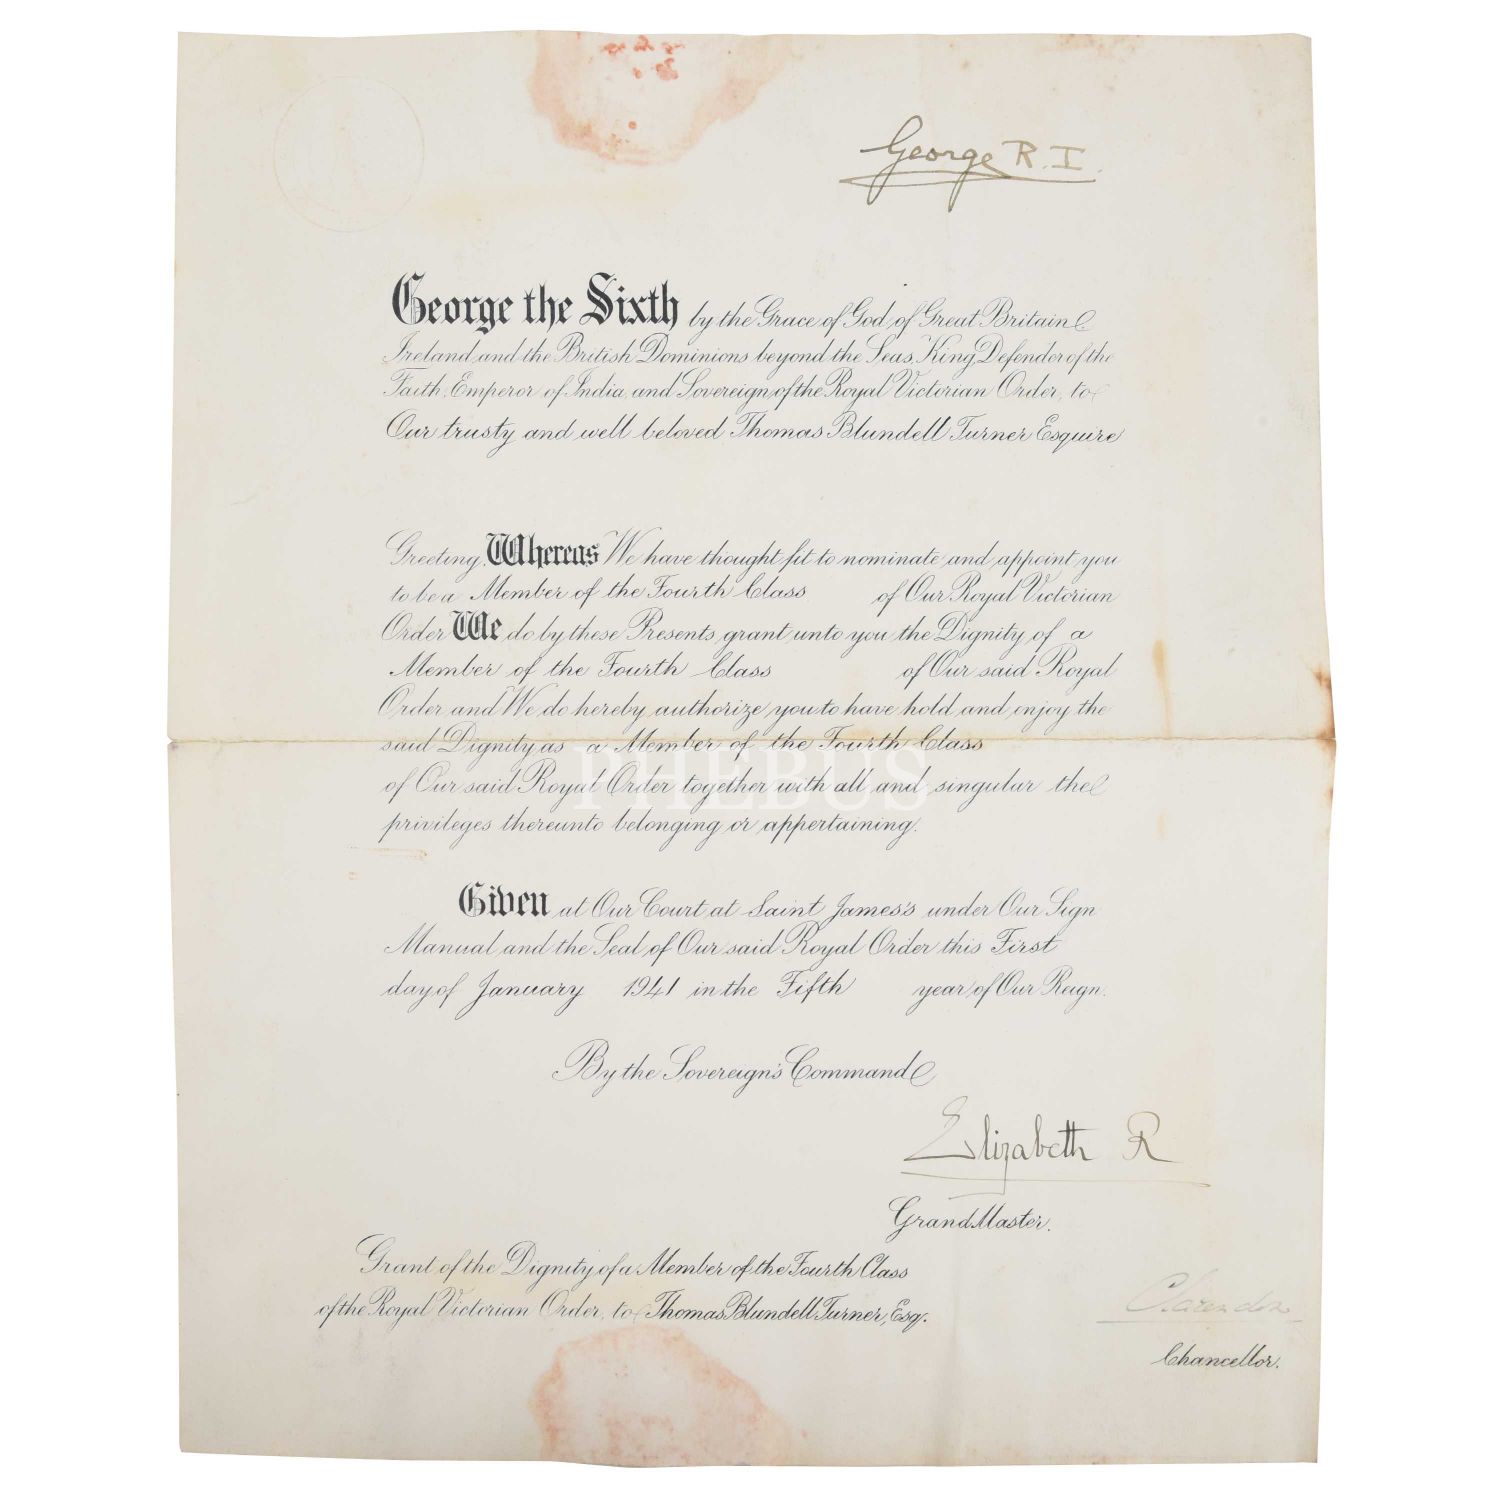 George R.I.
George the Sixth by the Grace of God, of Great Britain
Ireland and the British Dominions beyond the Seas, King, Defender of the
Faith, Emperor of India, and Sovereign of the Royal Victorian Order, to
Our trusty and well beloved Thomas Blundell Turner Esquire
Greeting, Whereas We have thought fit to nominate and appoint you
to be a Member of the Fourth Class of Our Royal Victorian
Order We do by these Presents grant unto you the Dignity of a
Member of the Fourth Class of Our said Royal
Order and We do hereby authorize you to have hold and enjoy the
said Dignity as a Member of the Fourth Class
of Our said Royal Order together with all and singular the
privileges thereunto belonging or appertaining.
PHEBUS
Given at Our Court at Saint James's under Our Sign
Manual and the Seal of Our said Royal Order this First
day of January 1941 in the Fifth year of Our Reign.
By the Sovereign's Command
Elizabeth R
Grand Master.
Grant of the Dignity of a Member of the Fourth Class
of the Royal Victorian Order, to Thomas Blundell Turner, Esq.
Clarendon
Chancellor.